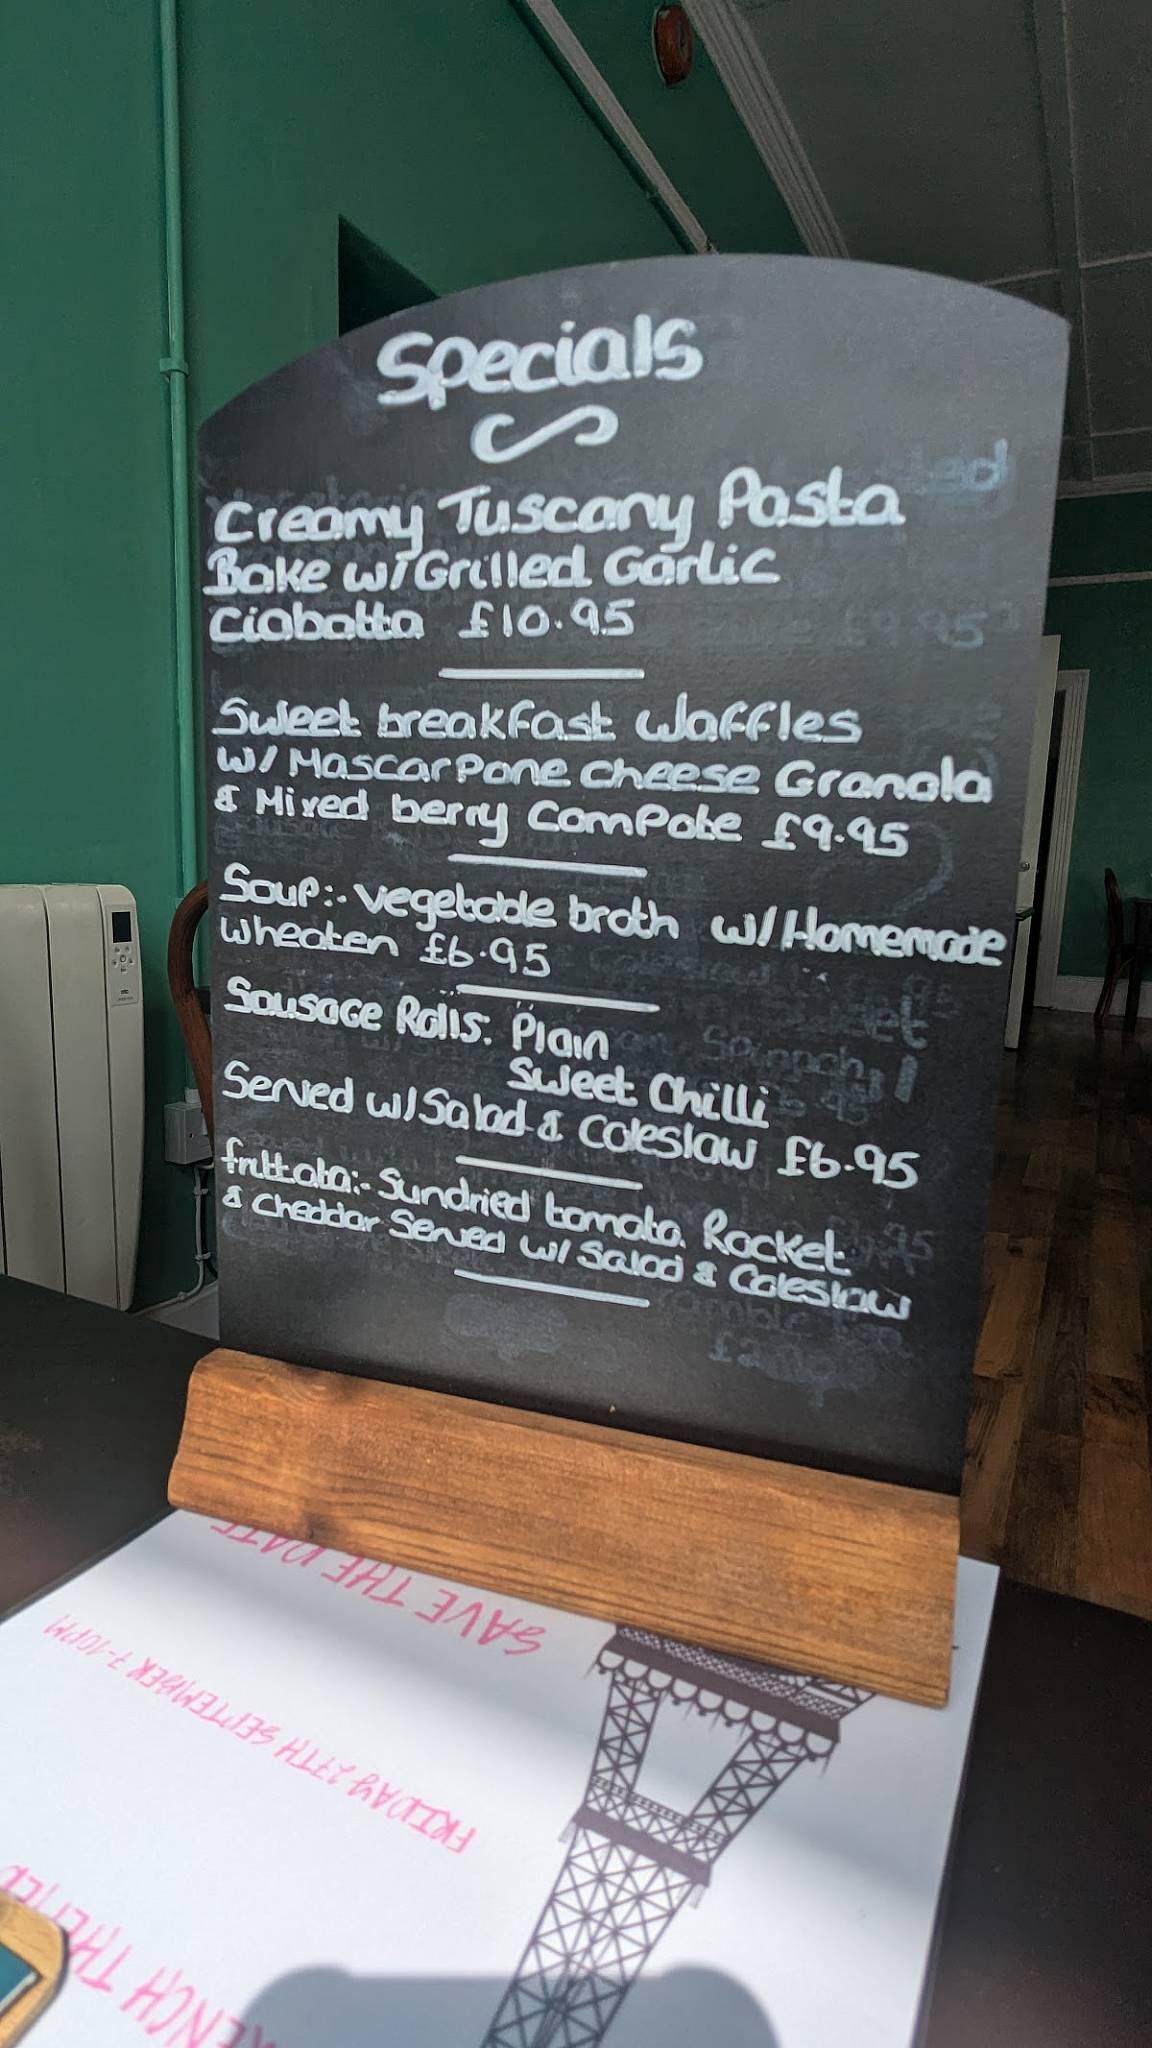 Specials
Creamy Tuscany Pasta
Bake w/Grilled Garlic
Ciabatta £10.95
Sweet breakfast waffles
w/ Mascarpone cheese Granola
& Mixed berry Compote £9.95
Soup:- vegetable broth w/Homemade
wheaten £6.95
Sausage Rolls: Plain
Sweet Chilli
Served w/Salad & Coleslaw £6.95
fruttata:- Sundried tomato Rocket
& Cheddar Served w/ Salad & Coleslaw
SAVE THE DATE
FRIDAY 27TH SEPTEMBER 7-10PM